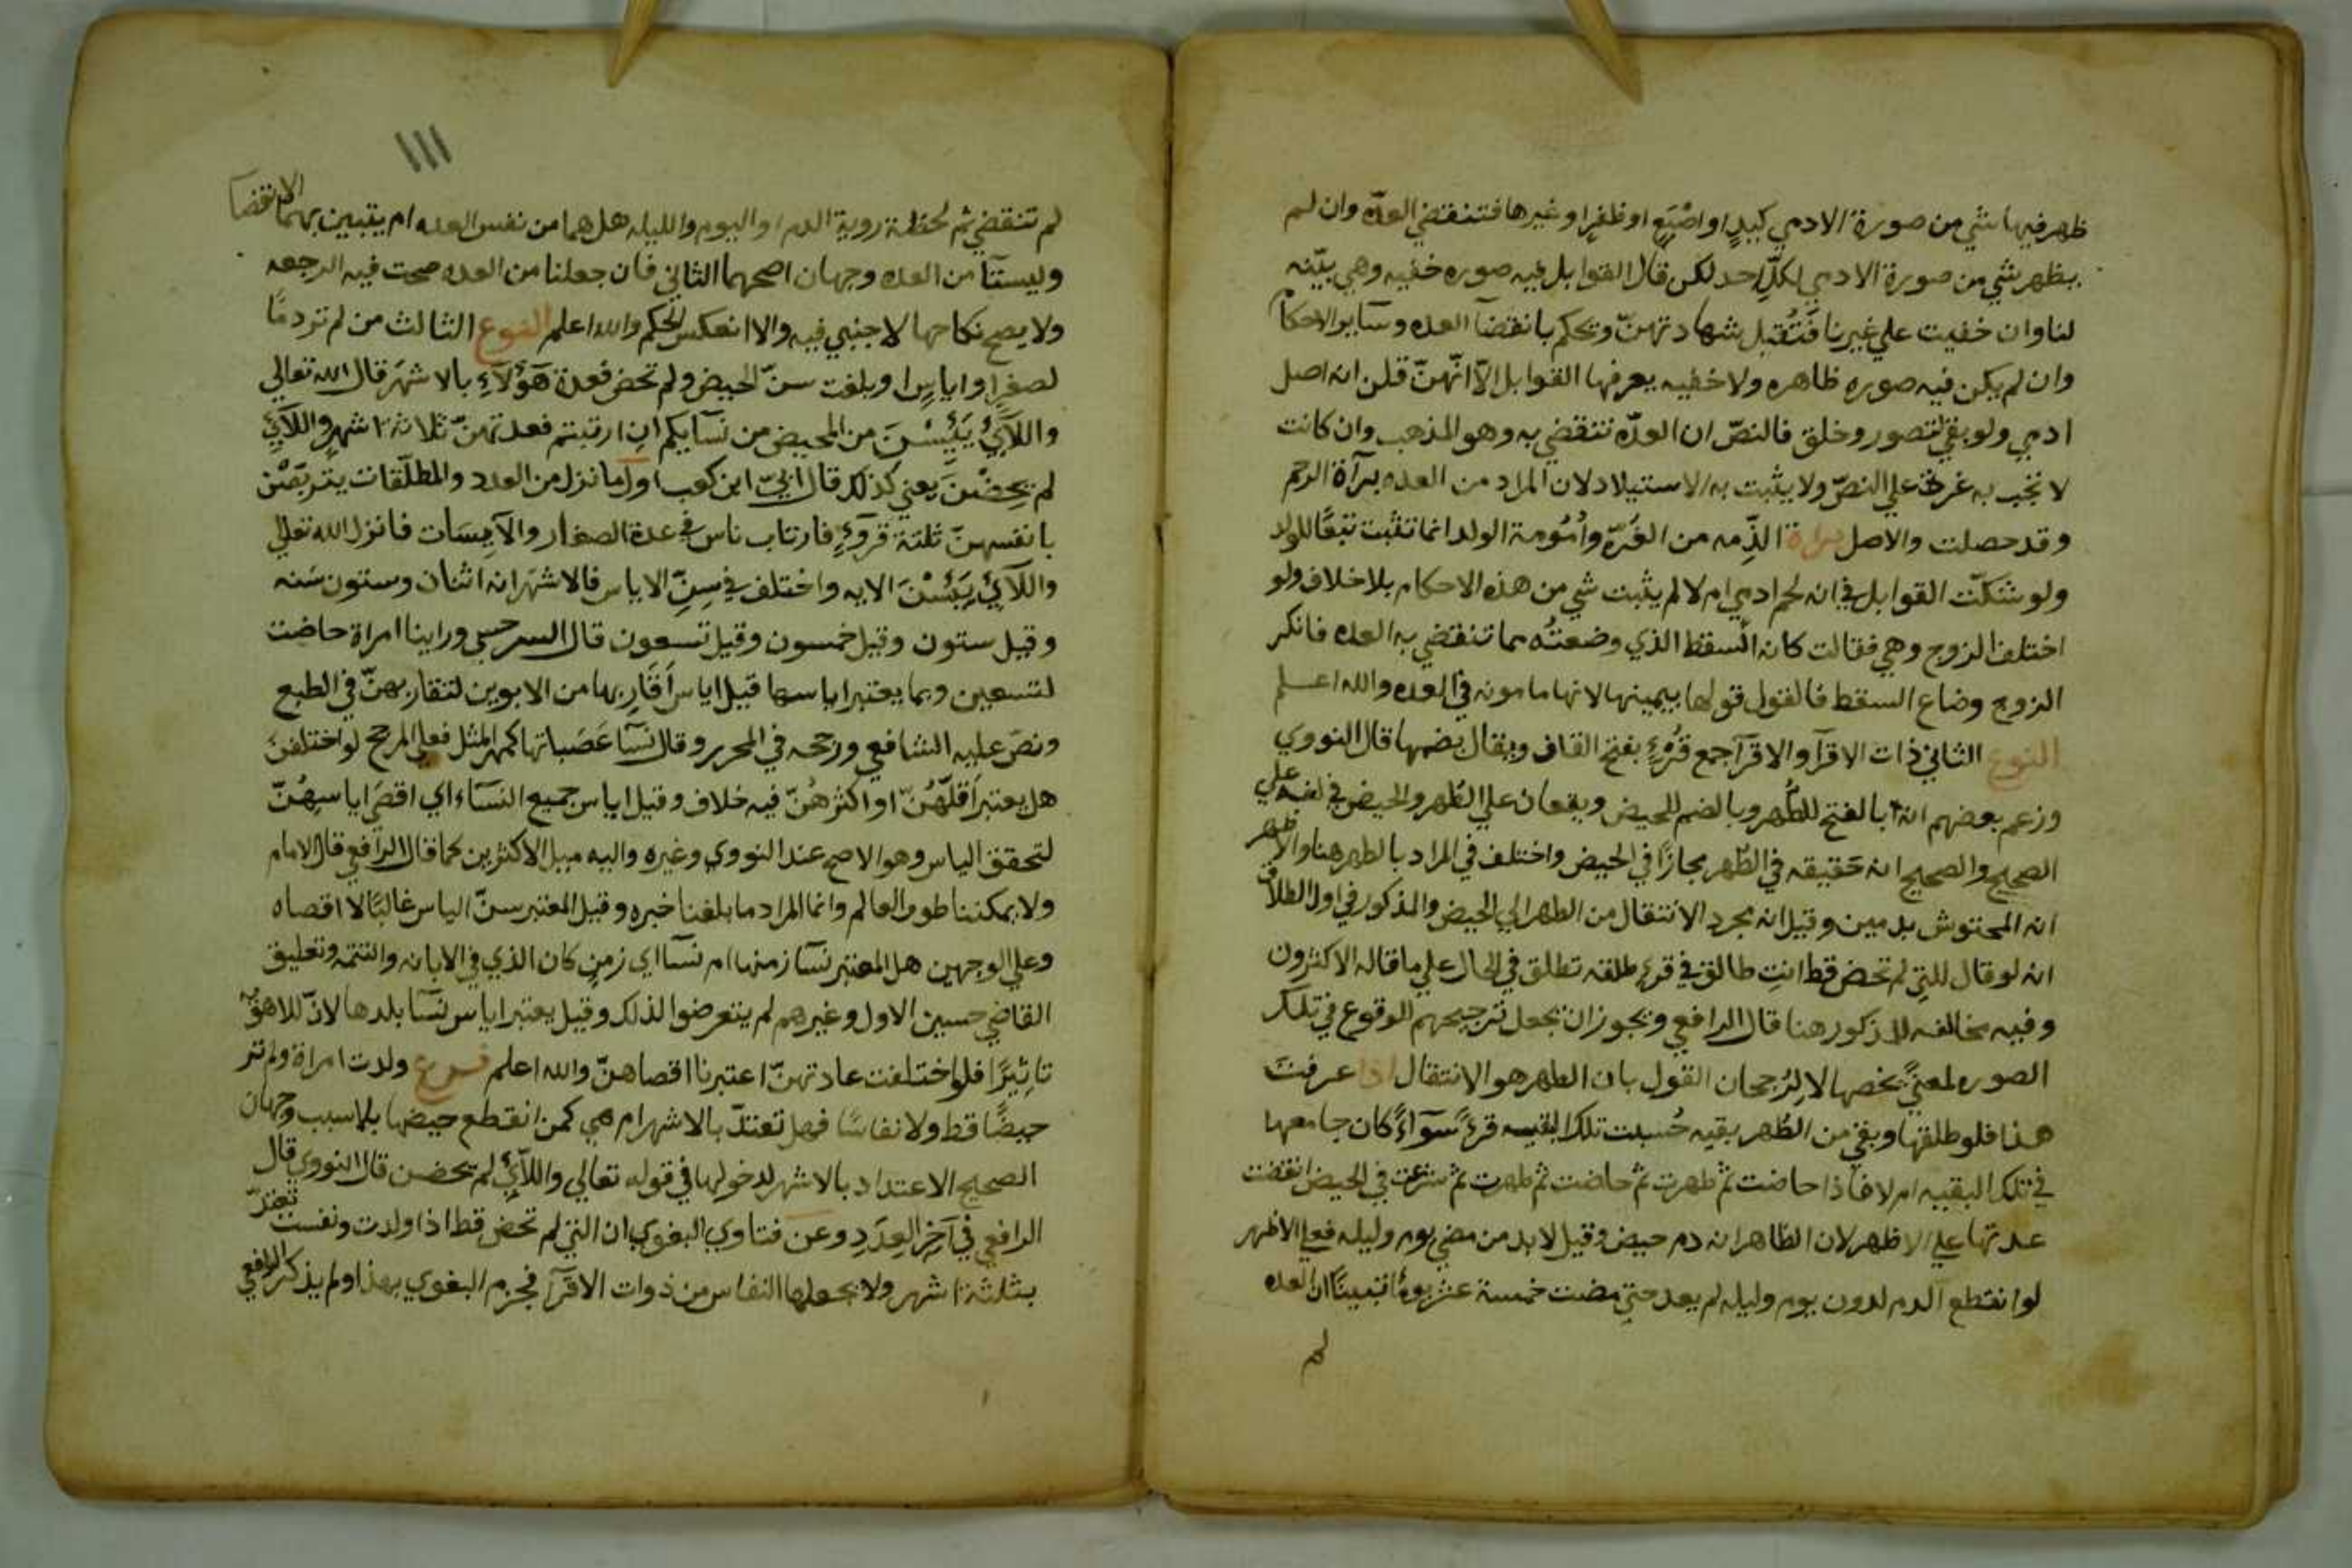 ظهر فيها شي من صورة الادمي كيدٍ او اصْبَعٍ او ظفرٍ او غيرها فتنقضي العدّه وان لم
يظهر شي من صورة الادمي لكلّ احد لكن قال القوابل فيه صوره خفيه وهي بيّنه
لنا وان خفيت علي غيرنا فَتُقبل شهادتهنّ ويحكم بانقضآ العده وسآير الاحكام
وان لم يكن فيه صوره ظاهره ولا خفيه يعرفها القوابل الّا انّهنّ قلن انه اصل
ادمي ولو بقي لتصور وخلق فالنصّ ان العدّه تنقضي به وهو المذهب وان كانت
لا تجب به غرة علي النصّ ولا يثبت به الاستيلاد لان المراد من العده برآة الرحم
وقد حصلت والاصل برآة الذِّمه من الغرّه وأمُومة الولد انما تثبت تبعًا للولد
ولو شكّت القوابل في انه لحم ادمي ام لا لم يثبت شي من هذه الاحكام بلا خلاف ولو
اختلف الزوج وهي فقالت كان السقط الذي وضعتُه مما تنقضي به العده فانكر
الزوج وضاع السقط فالقول قولها بيمينها لانها مامونه في العده والله اعلم
النوع الثاني ذات الاقرآ والاقرآ جمع قرْءٍ بفتح القاف ويقال بضمها قال النووي
وزعم بعضهم انه بالفتح للطُّهر وبالضم للحيض ويقعان علي الطُهر والحيض في لغه علي
الصحيح والصحيح انه حَقيقه في الطُهر مجازًا في الحيض واختلف في المراد بالطهر هنا والاظهر
انه المحتوش بدمين وقيل انه مجرد الانتقال من الطهر الي الحيض والمذكور في اول الطلاق
انه لو قال للتي لم تحض قط انتِ طالق في قرءٍ طلقه تطلق في الحال علي ما قاله الاكثرون
وفيه مخالفه للمذكور هنا قال الرافعي ويجوز ان يجعل ترجيحهم الوقوع في تلك
الصوره لمعنيً يخصها لا لِرُجحان القول بان الطهر هو الانتقال اذا عرفت
هذا فلو طلقها وبقي من الطُهر بقيه حُسبت تلك البقيه قرءً سوآءً كان جامعها
في تلك البقيه ام لا فاذا حاضت ثم طهرت ثم حاضت ثم طهرت ثم شرعت في الحيض انقضت
عدتها علي الاظهر لان الظاهر انه دم حيض وقيل لا بد من مضي يوم وليله فعلي الاظهر
لو انقطع الدم لدون يوم وليله لم يعد حتي مضت خمسة عشر يومًا تبينّا ان العده
لم
١١١
لم تنقضي ثم لحظة روية الدم او اليوم والليله هل هما من نفس العده ام يتبين بهما الانقضآ
وليستآ من العده وجهان اصحهما الثاني فان جعلنا من العده صحت فيه الرجعه
ولا يصح نكاحها لاجنبي فيه والا انعكس الحكم والله اعلم النوع الثالث من لم تر دمًا
لصغرٍ او اياسٍ او بلغت سنّ الحيض ولم تحض فعدة هَؤُلآءِ بالاشهَر قال الله تعالي
واللآئي يَئِسْنَ من المحيض من نسآيكم ان ارتبتم فعدتهنّ ثلاثة اشهرٍ واللآئي
لم يحِضْنَ يعني كذلك قال ابيّ ابن كعب اول ما نزل من العدد والمطلّقات يتربّصْن
بانفسهنّ ثلثة قروءٍ فارتاب ناس في عدة الصغار والآيسَات فانزل الله تعالي
واللآئي يَئِسْنَ الايه واختلف في سِنِّ الاياس فالاشهَر انه اثنان وستون سَنه
وقيل ستون وقيل خمسون وقيل تسعون قال السرخسي وراينا امراة حاضت
لتسعين وبما يعتبر اياسها قيل اياس اَقَارِبها من الابوين لتقاربهنّ في الطبع
ونصّ عليه الشافعي ورجحه في المحرر وقال نسآ عَصَباتها كمهر المثل فعلي المرجح لو اختلفن
هل يعتبر اَقلّهُنّ او اكثرهُنّ فيه خلاف وقيل اياس جميع النسَاء اي اقصَي اياسِهُنّ
لتحقق الياس وهو الاصح عند النووي وغيره واليه ميل الاكثرين كما قال الرافعي قال الامام
ولا يمكننا طوف العالم وانما المراد ما بلغنا خبره وقيل المعتبر سنّ الياس غالبًا لا اقصاه
وعلي الوجهين هل المعتبر نسآ زمنها ام نسآ اي زمنٍ كان الذي في الابانه والتتمه وتعليق
القاضي حسين الاول وغيرهم لم يتعرضوا لذلك وقيل يعتبر اياس نسآ بلدها لانّ للاهويه
تاثِيرًا فلو اختلفت عادتهنّ اعتبرنا اقصاهنّ والله اعلم فرع ولدت امراة ولم تر
حيضًا قط ولا نفاسًا فهل تعتدّ بالاشهر ام هي كمن انقطع حيضها بلا سبب وجهان
الصحيح الاعتداد بالاشهر لدخولها في قوله تعالي واللآئي لم يحضن قال النووي قال
الرافعي في آخِر العِدَدِ وعن فتاوي البغوي ان التي لم تحض قط اذا ولدت ونفست تعتدّ
بثلثة اشهر ولا يجعلها النفاس من ذوات الاقرآ فجزم البغوي بهذا ولم يذكر الرافعي